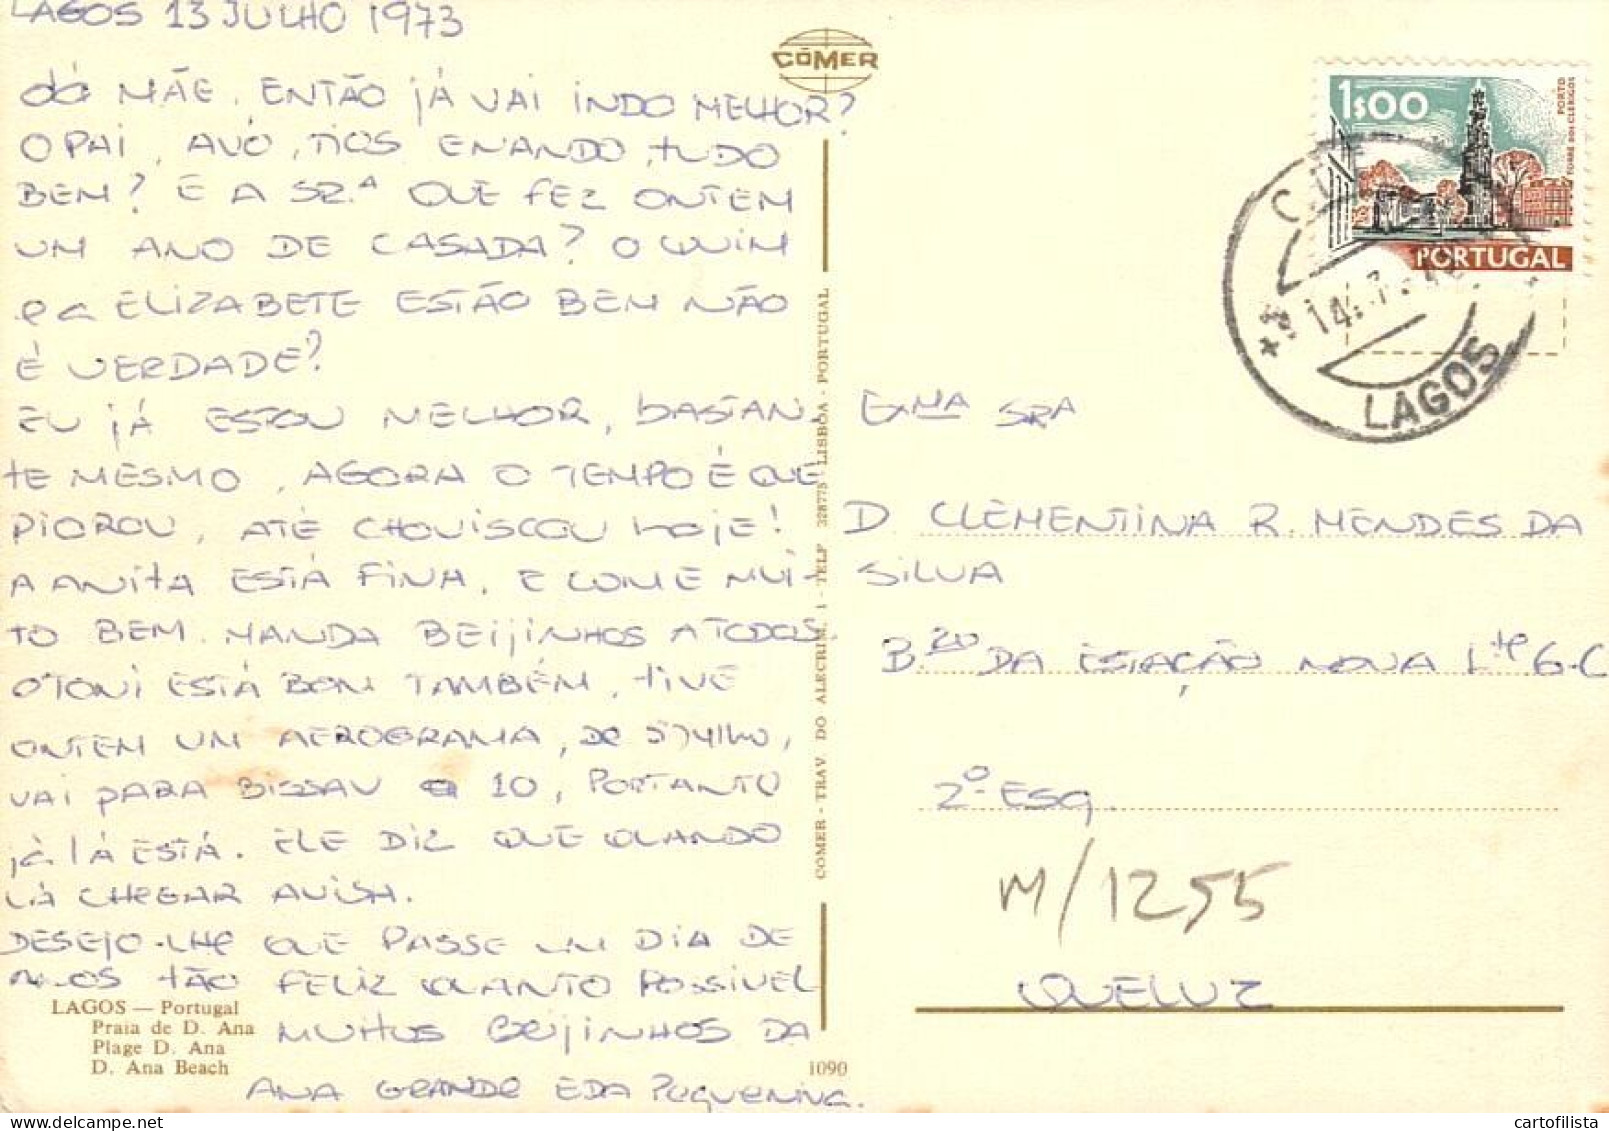 LAGOS 13 JULHO 1973
Olá MÃE, ENTÃO JÁ VAI INDO MELHOR?
O PAI, AVÓ, TIOS E NANDO, TUDO
BEM? E A SR.ª QUE FEZ ONTEM
UM ANO DE CASADA? O QUIM
e a ELIZABETE ESTÃO BEM NÃO
É VERDADE?
EU JÁ ESTOU MELHOR, bASTAN-
TE MESMO, AGORA O TEMPO É QUE
PIOROU, ATÉ CHOUISCOU hoJE!
A ANITA ESTÁ FINA, E COME MUI-
TO BEM. MANDA BEIJINHOS A TODOS.
O TONI ESTÁ BOM TAMBÉM, TIVE
ONTEM UM AEROGRAMA, DE 5 Julho,
VAI PARA BISSAU a 10, PORTANTO
já lá ESTÁ. ELE DIZ QUE QUANDO
LÁ CHEGAR AVISA.
DESEJO-LHE QUE PASSE UM DIA DE
ANOS TÃO FELIZ QUANTO POSSIVEL
MUITOS BEIJINHOS DA
ANA GRANDE E DA PEQUENINA.
LAGOS — Portugal
Praia de D. Ana
Plage D. Ana
D. Ana Beach
CÓMER
COMER - TRAV. DO ALECRIM, 1 - TELF 328775 LISBOA - PORTUGAL
1090
1$00
PORTO
TORRE DOS CLERIGOS
PORTUGAL
LAGOS
Exma SRA
D. CLEMENTINA R. MENDES DA
SILVA
B.ro DA ESTAÇÃO NOVA Lte 6-C
2º ESQ.
M/1255
QUELUZ
cartofilista